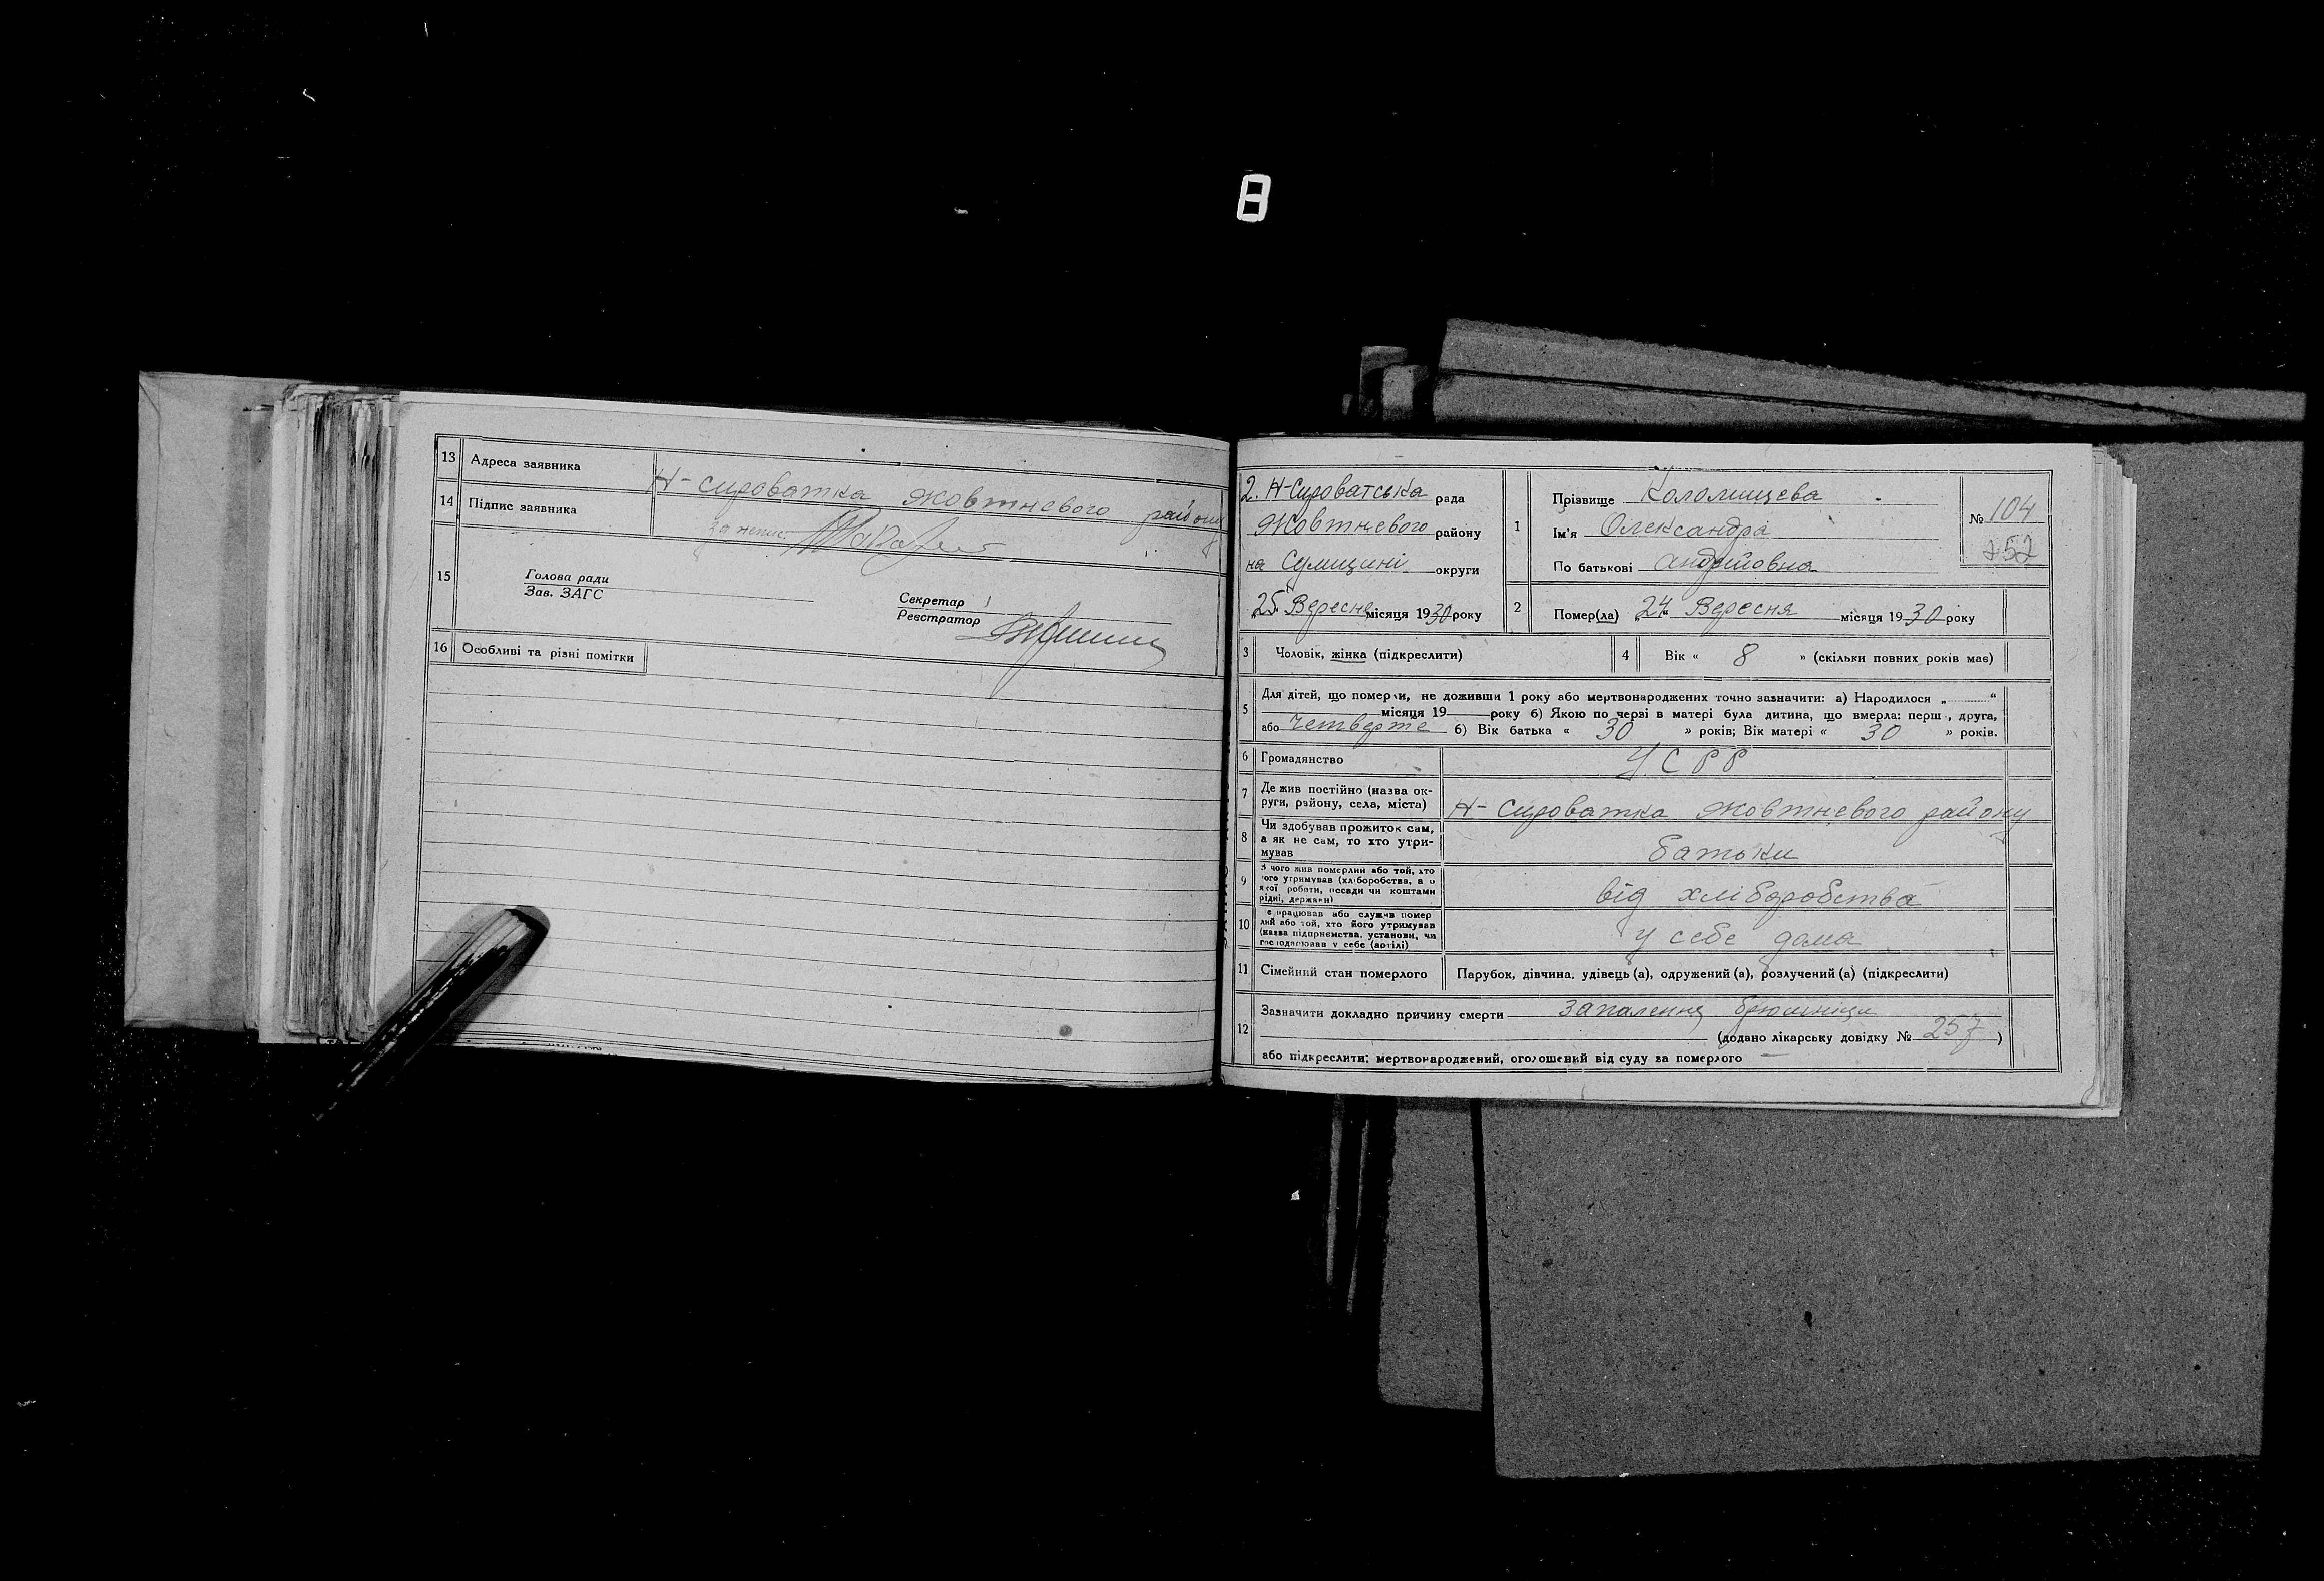 8
13 Адреса заявника Н-Сироватка Жовтневого району
14 Підпис заявника за непис.
15 Голова ради
Зав. ЗАГС
Секретар
Реєстратор
16 Особливі та різні помітки
2. Н-Сироватська рада
Жовтневого району
на Сумщині округи
„25" Вересня місяця 1930 року
1 Прізвище Коломищева
Ім'я Олександра
По батькові Андрійовна
№ 104
252
2 Помер(ла) „24" Вересня місяця 1930 року
3 Чоловік, жінка (підкреслити)
4 Вік « 8 » (скільки повних років має)
5 Для дітей, що померли, не доживши 1 року або мертвонароджених точно зазначити: а) Народилося „ “
місяця 19 року б) Якою по черзі в матері була дитина, що вмерла: перш , друга,
або четверте б) Вік батька « 30 » років; Вік матері « 30 » років.
6 Громадянство УСРР
7 Де жив постійно (назва округи, району, села, міста) Н-Сироватка Жовтневого району
8 Чи здобував прожиток сам,
а як не сам, то хто утри-
мував батьки
9 З чого жив померлий або той, хто
його утримував (хліборобства, а о
якої роботи, посади чи коштами
рідні, держави) від хліборобства
10 е працював або служив помер
лий або той, хто його утримував
(назва підприємства, установи, чи
господарював у себе (артілі) у себе дома
11 Сімейний стан померлого Парубок, дівчина, удівець (а), одружений (а), розлучений (а) (підкреслити)
12 Зазначити докладно причину смерти запалення брюшніци
(додано лікарську довідку № 257 )
або підкреслити: мертвонароджений, оголошений від суду за померлого